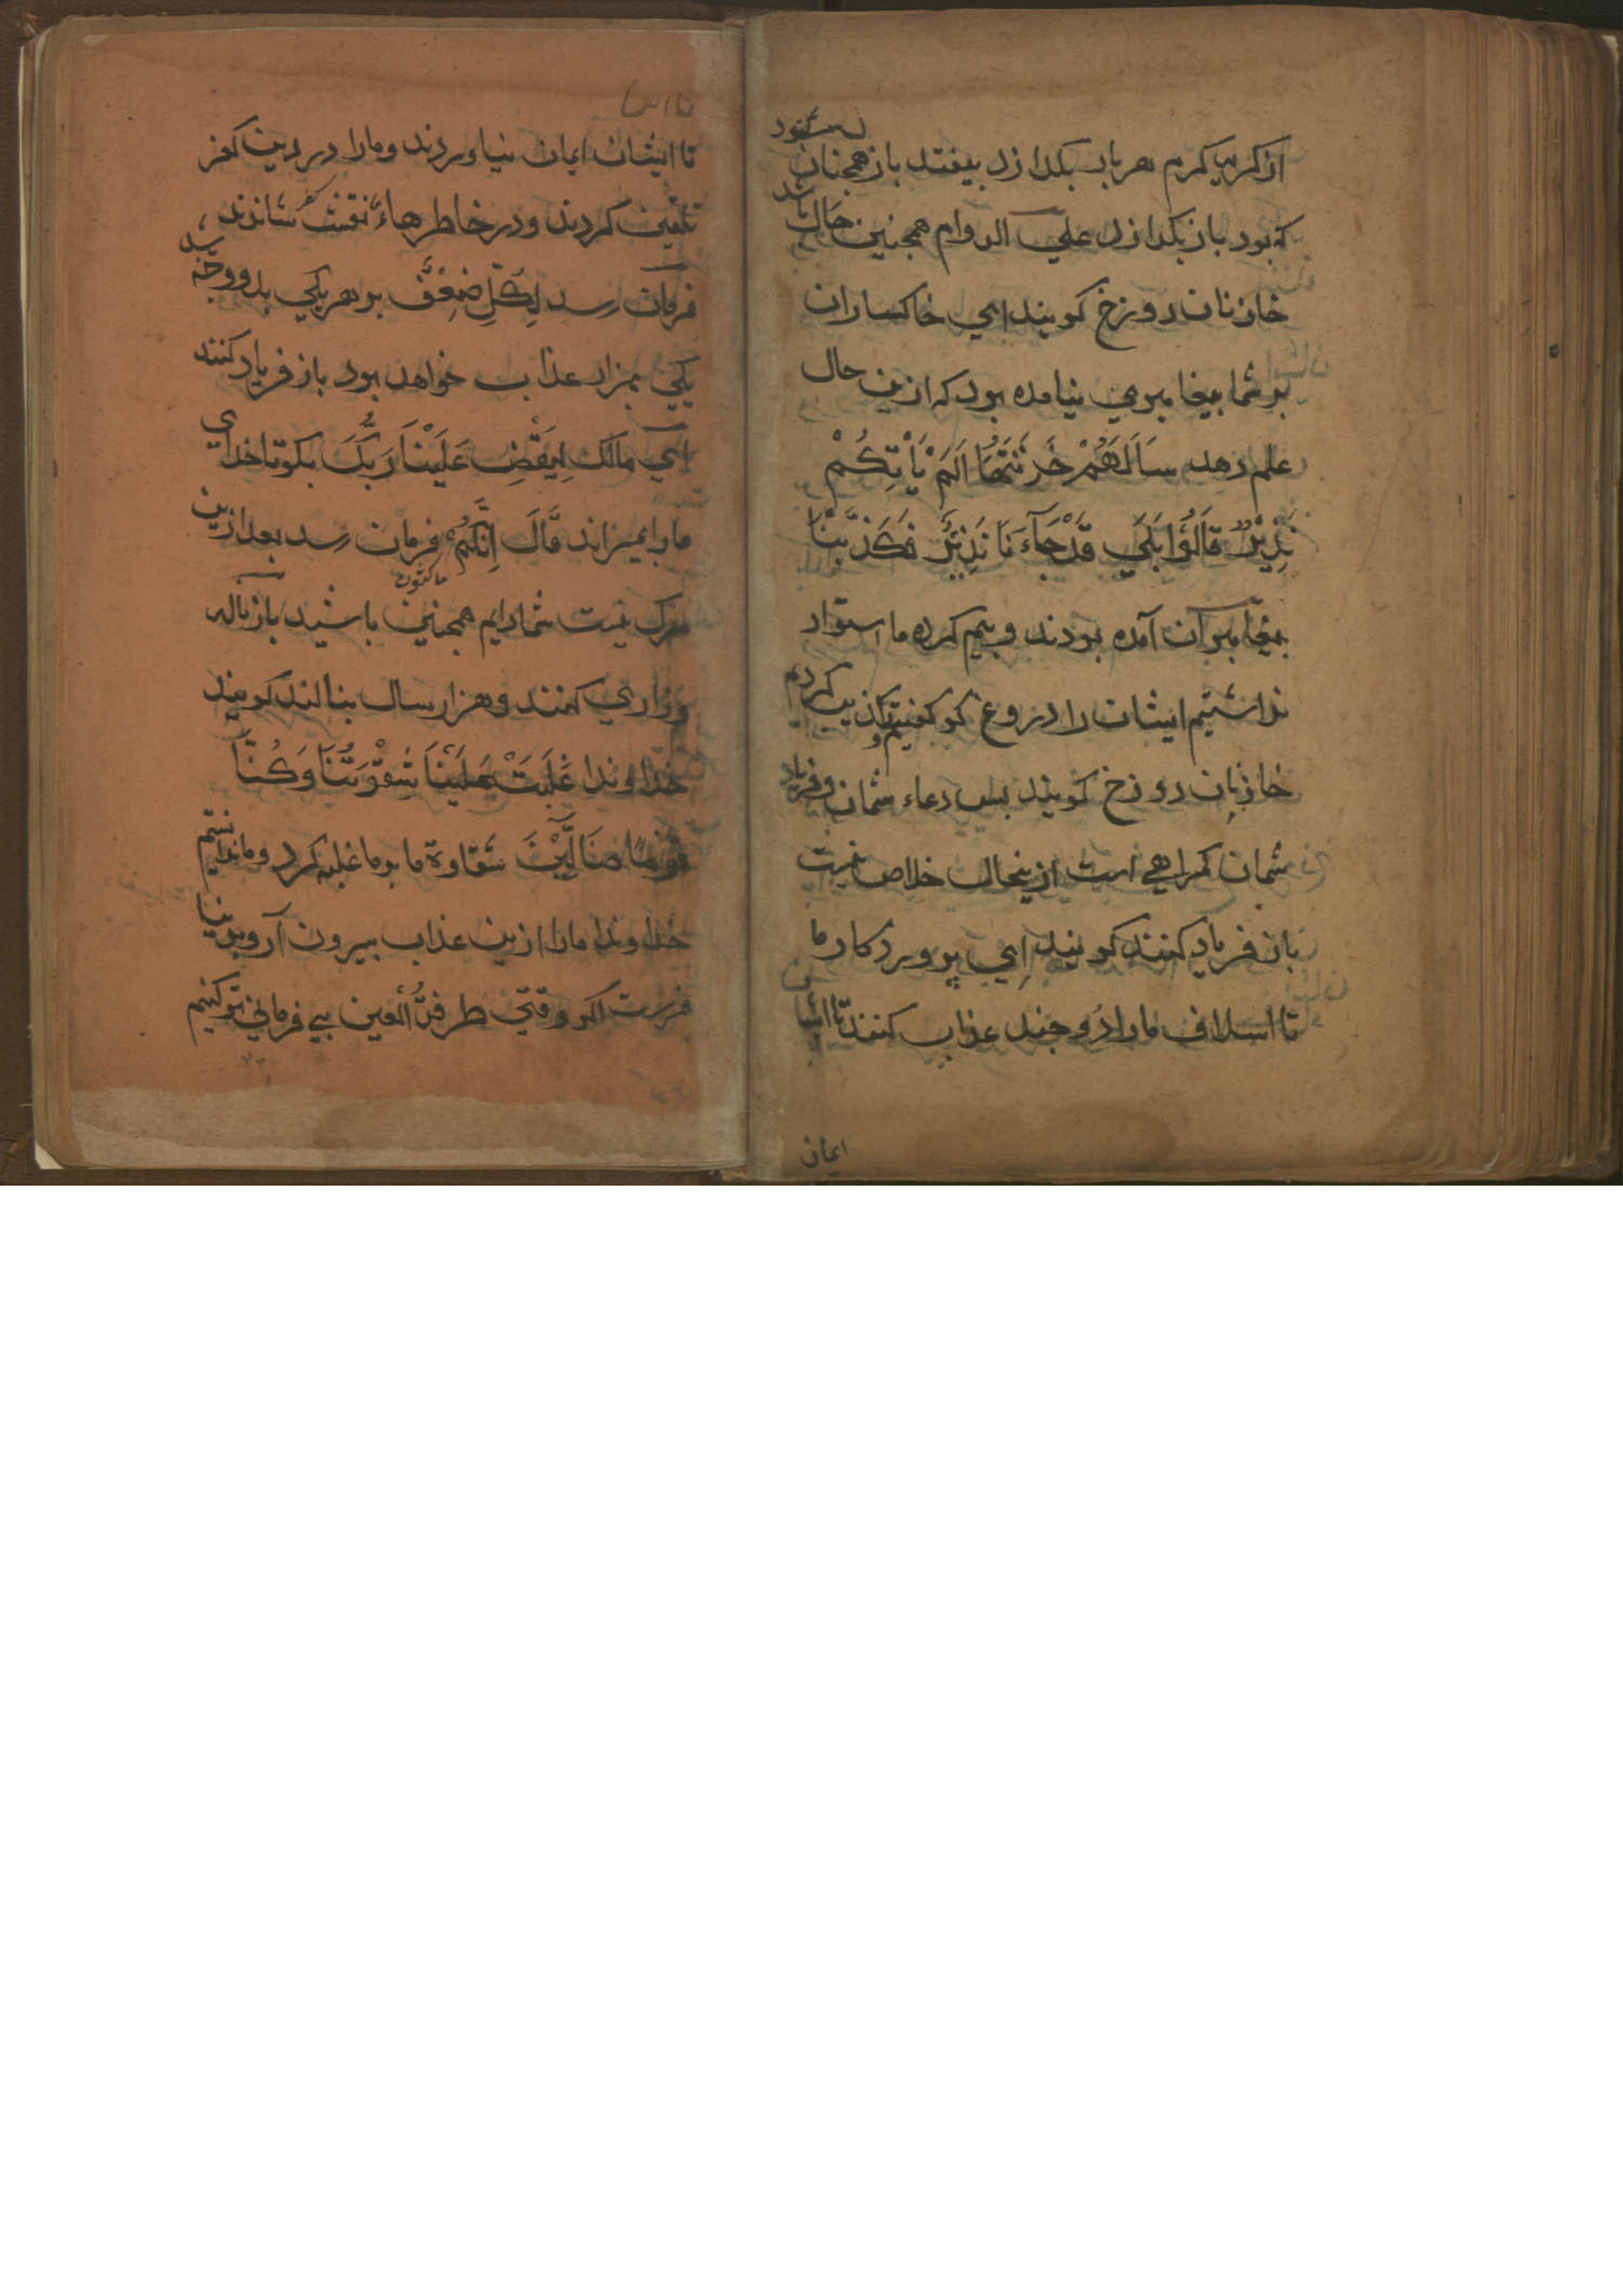 از کرمیا کرم هر بار بکدازد بیفتد باز همچنان شود
که بود باز بکدازد علي الدوام همچنین حال باشد
خازنان دوزخ کویند اي خاکساران
بر شما پیغامبري نیامده بود که ازین حال
علم دهد سَاَلَهُمْ خَزَنَتُهَا اَلَمْ يَأْتِكُمْ
نَذِيْرٌ قَالُوْا بَلَي قَدْ جَآءَ نَا نَذِيْرٌ فَكَذَّبْنَا
پیغامبران آمده بودند و بیم کرده ما استوار
نداشتیم ایشان را دروغ کو کفتیم و تکذیب کردیم
خازنان دوزخ کویند بس دعاء شمان و فریاد
شمان کمراهي است ازینحال خلاص نیست
باز فریاد کنند کویند اِي پروردکار ما
تا اسلاف ما را دو چند عذاب کنند تا ایشان
ایمان
تا ایشان ایمان نیاوردند و ما را در دین کفر
تلقین کردند و در خاطرهاء نقش کفر نشاندند
فرمان رسد لِكُلٍّ ضِعْفٌ بر هر یکي بدو وجه رسد
یکي بهزار عذاب خواهد بود باز فریاد کنند
اي مالك لِيَقْضِ عَلَيْنَا رَبُّكَ بکو تا خداي
ما را بمیراند قَالَ اِنَّكُمْ ماکثون فرمان رسد بعد ازین
مرک نیست شما دایم همچنین باشید باز ناله
و زاري کنند و هزار سال بنالند کویند
خداوندا غَلَبَتْ عَلَيْنَا شِقْوَتُنَا وَكُنَّا
قَوْمًا ضَالِّيْنَ شقاوة ما بر ما غلبه کرد و ما ندانستیم
خداوندا ما را ازین عذاب بیرون آر و بدنیا
فرست اکر وقتي طرفةُ العین بي فرماني تو کنیم